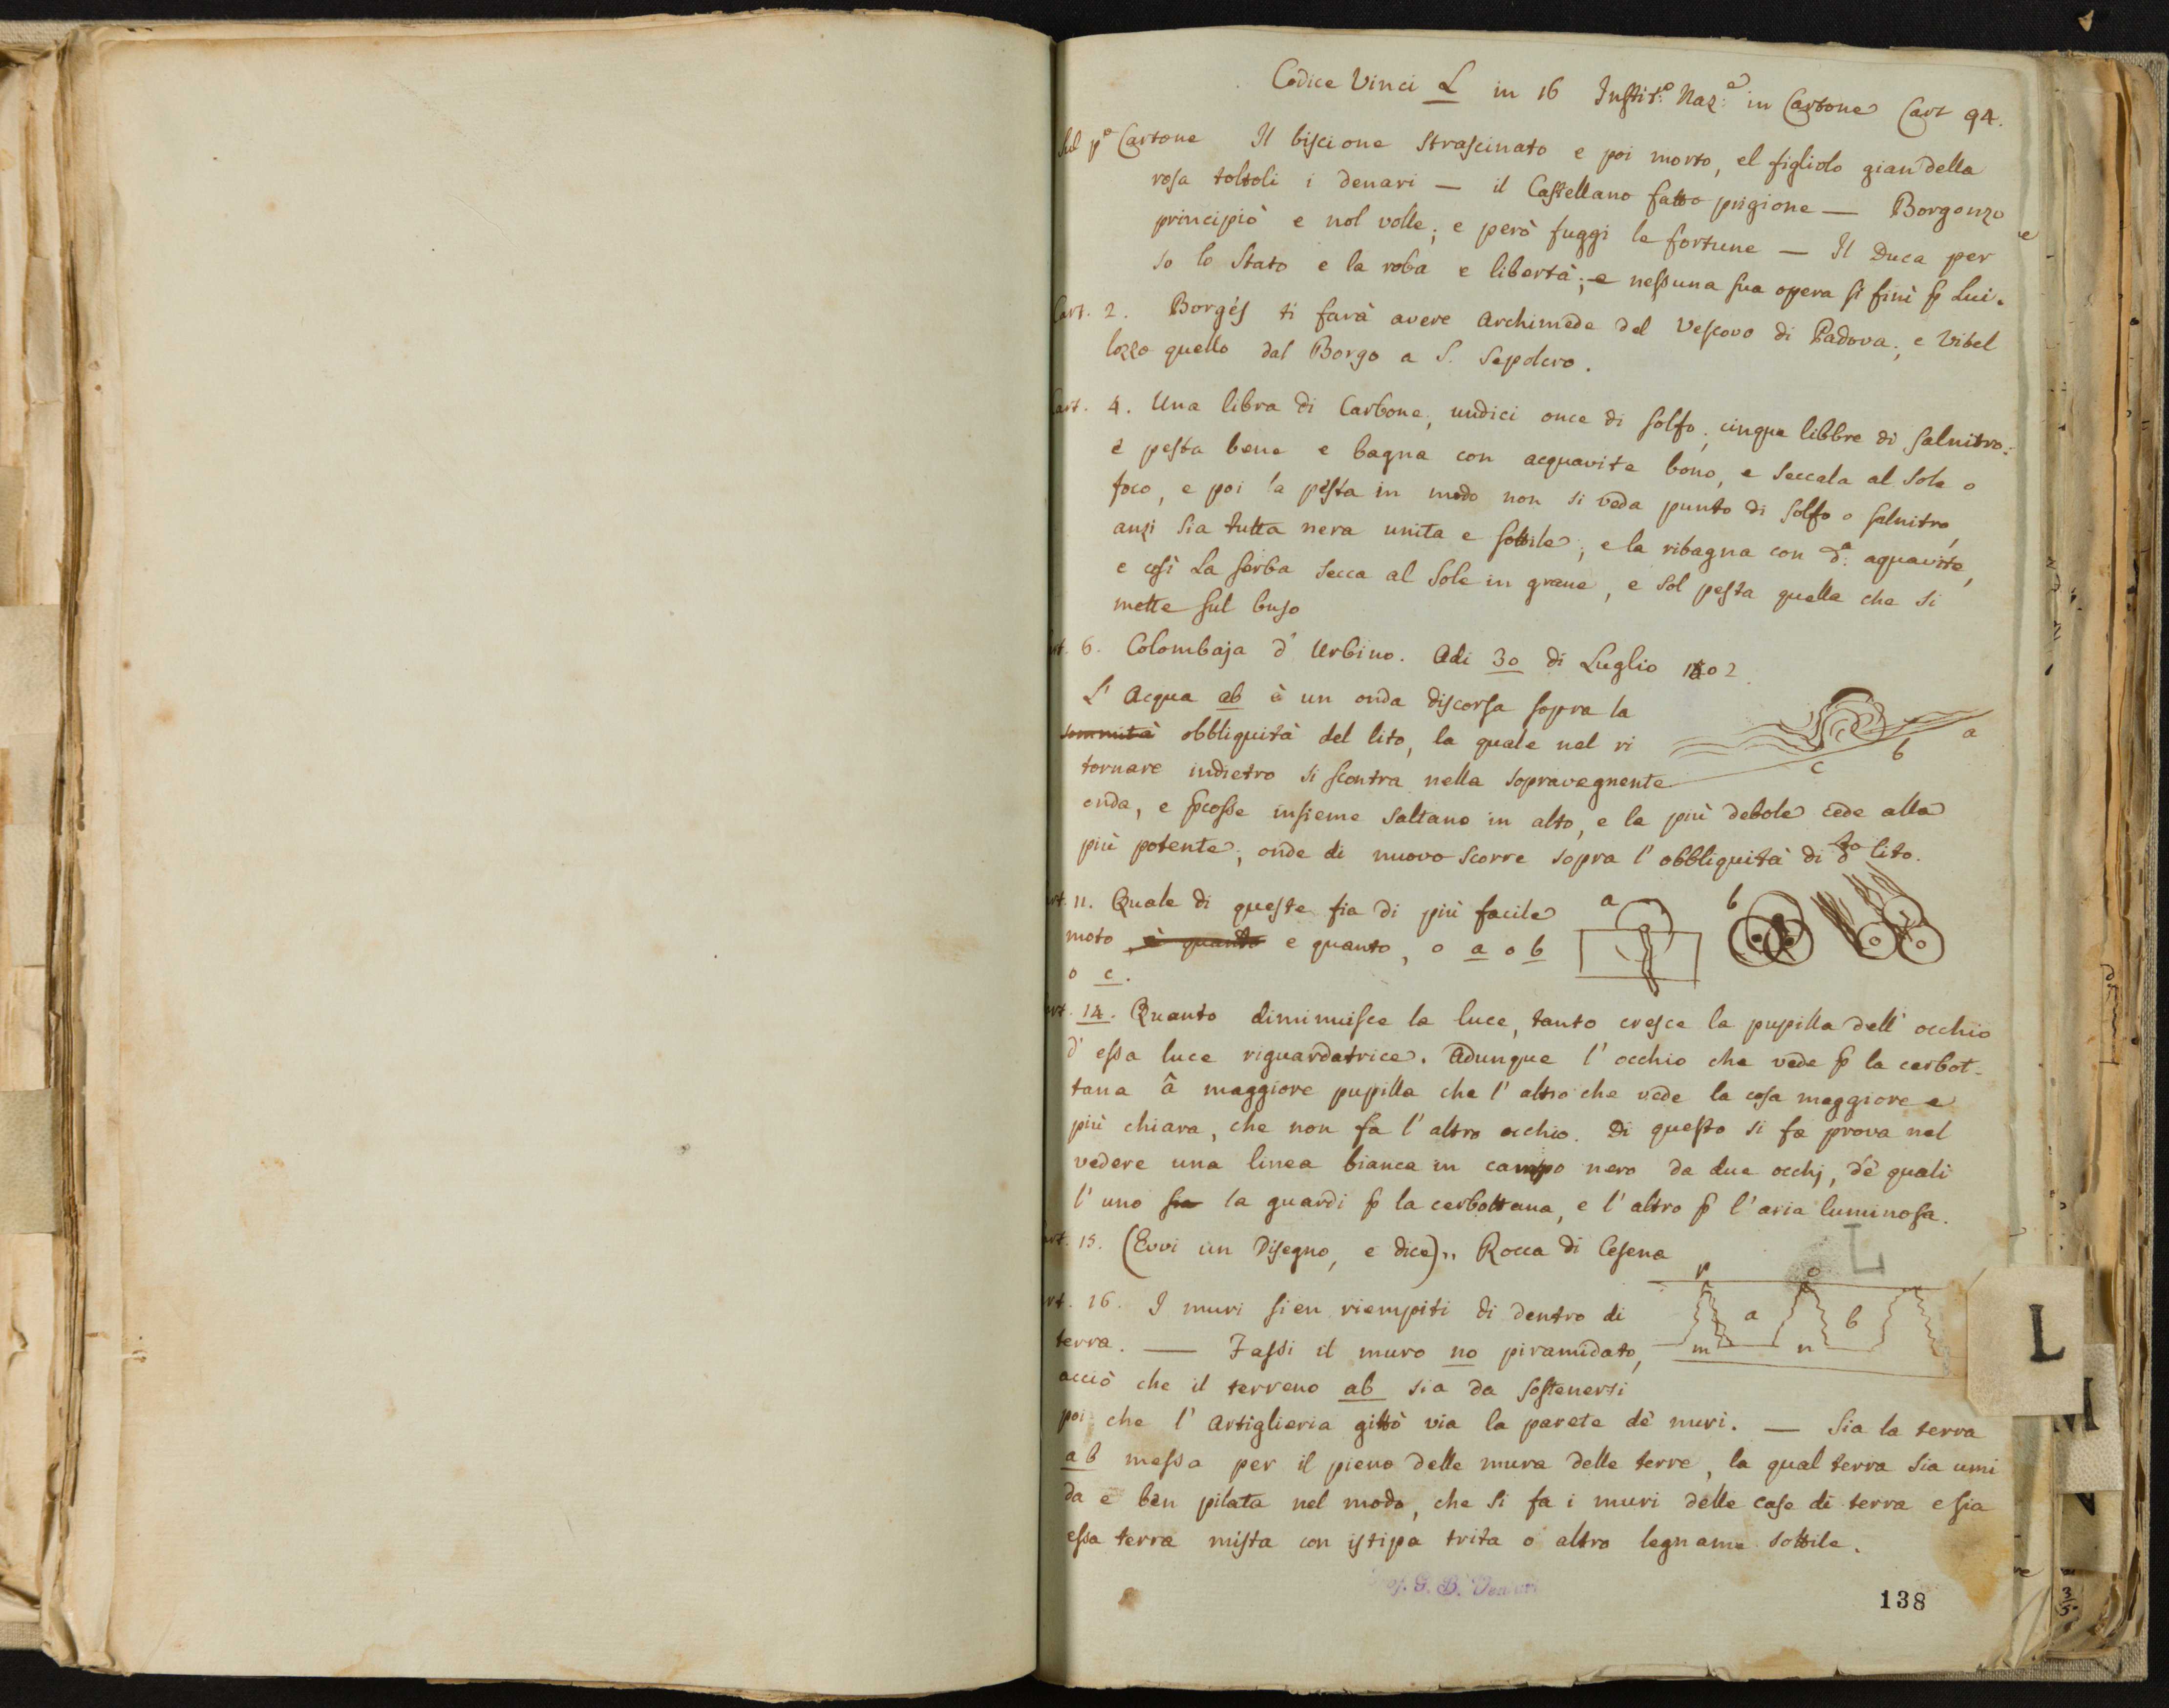 Codice Vinci L in 16 Instit:o Naz:a in Cartone Cart 94.
Sul po Cartone Il biscione strascinato e poi morto, el figliolo gian della
rosa toltoli i denari — il Castellano fatto prigione — Borgonzo
principiò e nol volle; e però fuggi le fortune — Il Duca per
so lo Stato e la roba e libertà; e nessuna sua opera si finì p Lui.
Cart. 2. Borgés ti farà avere Archimede del Vescovo di Padova; e Vitel
lozzo quello dal Borgo a S. Sepolcro.
Cart. 4. Una libra di Carbone, undici once di solfo, cinque libbre di salnitro:
e pesta bene e bagna con acquavite bono, e seccala al sole o
foco, e poi la pesta in modo non si veda punto di solfo o salnitro,
anzi sia tutta nera unita e sottile; e la ribagna con d:a aquavite,
e così la serba secca al sole in grane, e sol pesta quella che si
mette sul buso
Cart. 6. Colombaja d' Urbino. Adi 30 di Luglio 1502
L' Acqua ab è un onda discorsa sopra la
sommità obbliquità del lito, la quale nel ri
tornare indietro si scontra nella sopravegnente
onda, e pcosse insieme saltano in alto, e la più debole cede alla
più potente; onde di nuovo scorre sopra l' obbliquità di dto lito.
a
b
c
Cart. 11. Quale di queste fia di più facile
moto è quanto e quanto, o a o b
o c.
a
b
Cart. 14. Quanto diminuisce la luce, tanto cresce la pupilla dell' occhio
d' essa luce riguardatrice. Adunque l' occhio che vede p la cerbot-
tana â maggiore pupilla che l' altro che vede la cosa maggiore e
più chiara, che non fa l' altro occhio. Di questo si fa prova nel
vedere una linea bianca in campo nero da due occhj, dè quali
l' uno sia la guardi p la cerbottana, e l' altro p l' aria luminosa.
Cart. 15. (Evvi un Disegno, e dice),, Rocca di Cesena
L
Cart. 16. I muri sien riempiti di dentro di
terra. — Fassi il muro no piramidato,
acciò che il terreno ab sia da sostenersi
poi che l' Artiglieria gittò via la parete dè muri. — Sia la terra
ab messa per il pieno delle mura delle terre, la qual terra sia umi
da e ben pilata nel modo, che si fa i muri delle case di terra e sia
essa terra mista con istipa trita o altro legname sottile.
a
b
m
n
o
L
M
138